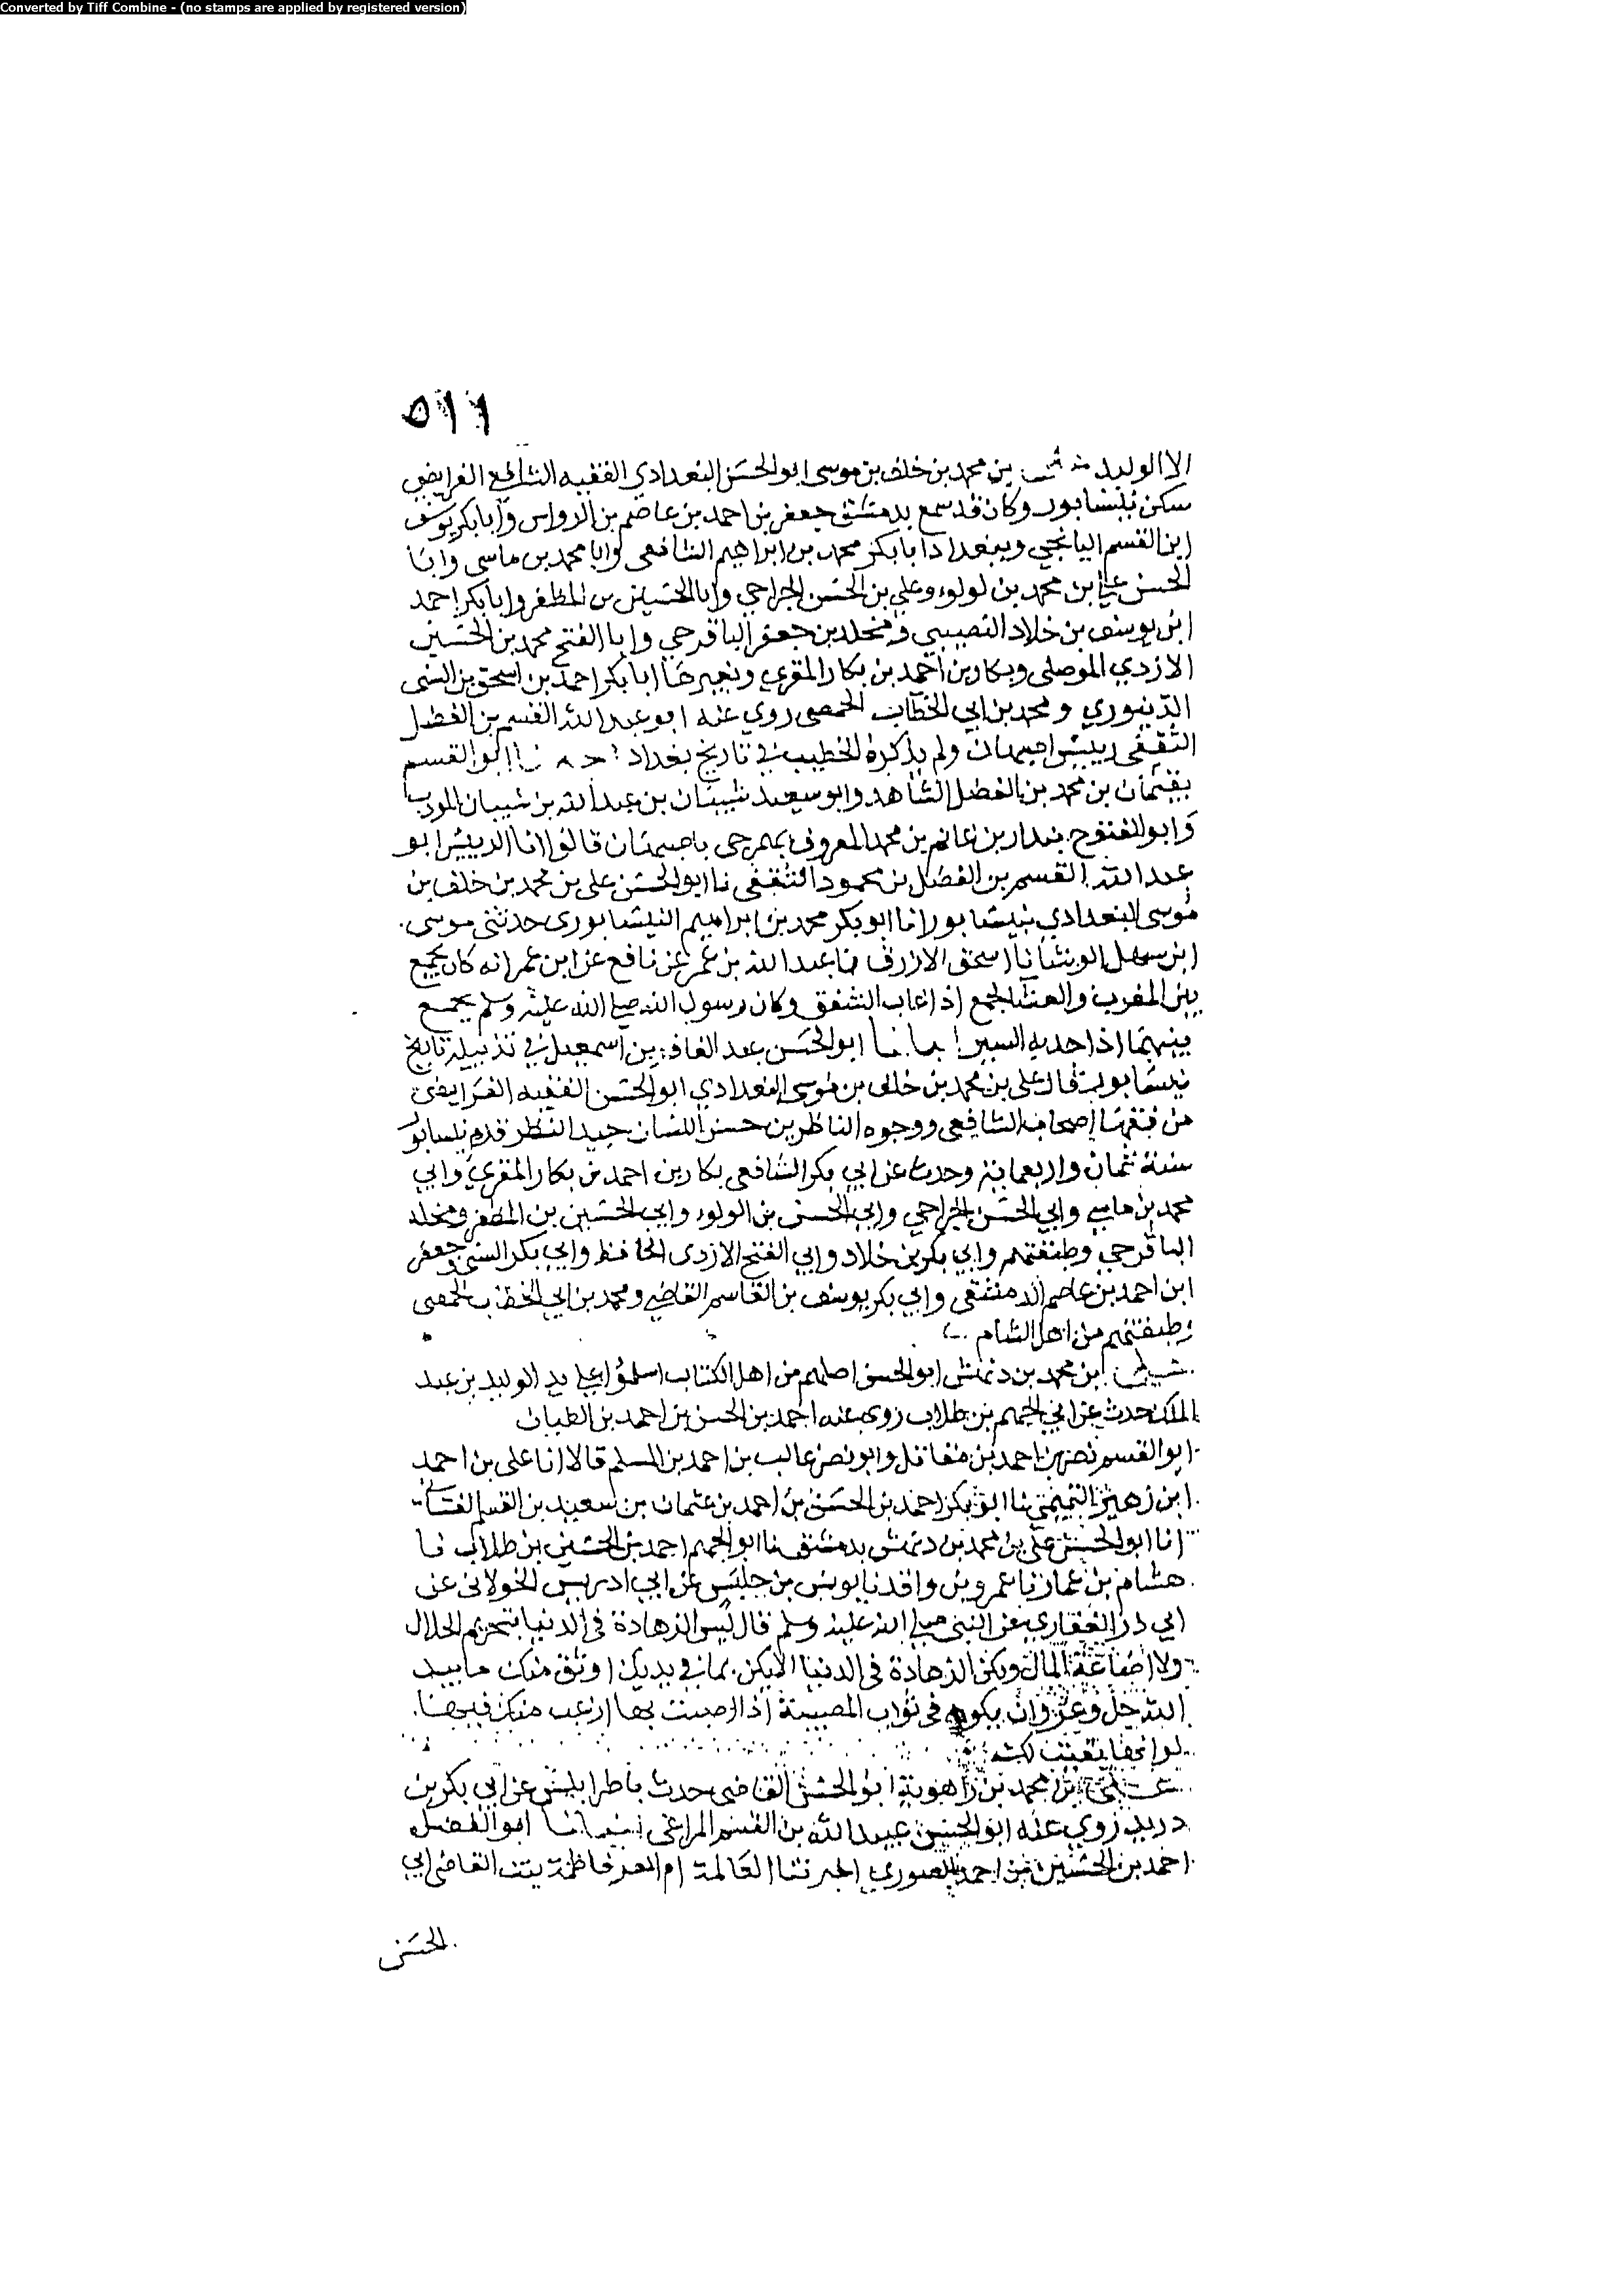 Converted by Tiff Combine - (no stamps are applied by registered version)
٥١١
الا الوليد بن محمد بن خلف بن موسى ابو الحسن البغدادي الفقيه الشافعي الفرايضي
سكن نيسابور وكان قد سمع بدمشق جعفر بن احمد بن عاصم بن الرواس وابا بكر يوسف
ابن القسم اليانجي وببغداد ابا بكر محمد بن ابراهيم الشافعي وابا محمد بن ماسي وابا
الحسن علي بن محمد بن لولوء وعلي بن الحسن الجراحي وابا الحسين بن المظفر وابا بكر احمد
ابن يوسف بن خلاد النصيبي ومخلد بن جعفر الباقرحي وابا الفتح محمد بن الحسين
الازدي الموصلي وبكار بن احمد بن بكار المقري وبغيرها ابا بكر احمد بن اسحق بن السني
الدينوري ومحمد بن ابي الخطاب الحمصي روى عنه ابو عبد الله القسم بن الفضل
الثقفي رييس اصبهان ولم يذكره الخطيب في تاريخ بغداد ابو القسم
بن محمد بن الفضل الشاهد وابو سعيد شيبان بن عبد الله بن شيبان المودب
وابو الفتوح بندار بن غانم بن محمد المعروف باصبهان قالوا انا الرييس ابو
عبد الله القسم بن الفضل بن محمود الثقفي نا ابو الحسن علي بن محمد بن خلف بن
موسى البغدادي بنيشابور انا ابو بكر محمد بن ابراهيم النيشابوري حدثني موسى
ابن سهل الوشا نا اسحق الازرق نا عبد الله بن عمر عن نافع عن ابن عمر انه كان يجمع
بين المغرب والعشا الجمع اذا غاب الشفق وكان رسول الله صلى الله عليه وسلم يجمع
بينهما اذا جد به السير ابو الحسن عبد الغافر بن اسمعيل في تذييله تاريخ
نيسابور قال علي بن محمد بن خلف بن موسى البغدادي ابو الحسن الفقيه الفرايضي
من فقها اصحاب الشافعي ووجوه الناظرين حسن اللسان جيد النظر قدم نيسابور
سنة ثمان واربعماية وحدث عن ابي بكر الشافعي بكار بن احمد بن بكار المقري وابي
محمد بن ماسي وابي الحسن الجراحي وابي الحسن بن الولوء وابي الحسين بن المظفر ومخلد
الباقرحي وطبقتهم وابي بكر بن خلاد وابي الفتح الازدي الحافظ وابي بكر السني وجعفر
ابن احمد بن عاصم الدمشقي وابي بكر يوسف بن القاسم القاضي ومحمد بن ابي الحمصي
وطبقتهم من اهل الشام
ابن محمد بن دغش ابو الحسن اصلهم من اهل الكتاب اسلموا علي يد الوليد بن عبد
الملك حدث عن ابي الجهم بن طلاب روى عنه احمد بن الحسن بن احمد بن الطيان
ابو القسم نصر بن احمد بن مقاتل وابو نصر غالب بن احمد بن المسلم قالا انا علي بن احمد
ابن زهير التميمي نا ابو بكر احمد بن الحسن بن احمد بن عثمان بن سعيد بن القسم الغساني
انا ابو الحسن علي بن محمد بن دغش بدمشق نا ابو الجهم احمد بن الحسين بن طلاب نا
هشام بن عمار نا عمرو بن واقد نا يونس بن حلبس عن ابي ادريس الخولاني عن
ابي ذر الغفاري عن النبي صلى الله عليه وسلم قال ليس الزهادة في الدنيا بتحريم الحلال
ولا اضاعة المال ولكن الزهادة في الدنيا الا يكن بما في يديك اوثق منك ما بيد
الله جل وعز وان يكون في ثواب المصيبة اذا اصبت بها ارغب منك فيها
لو انها بقيت لك
بن محمد بن راهوية ابو الحسن القاضي حدث باطرابلس عن ابي بكر بن
دريد روى عنه ابو الحسين عبيد الله بن القسم المراغي ابو الفضل
احمد بن الحسين بن احمد الصوري اخبرتنا العالمة ام العز فاطمة بنت القاضي ابي
الحسن